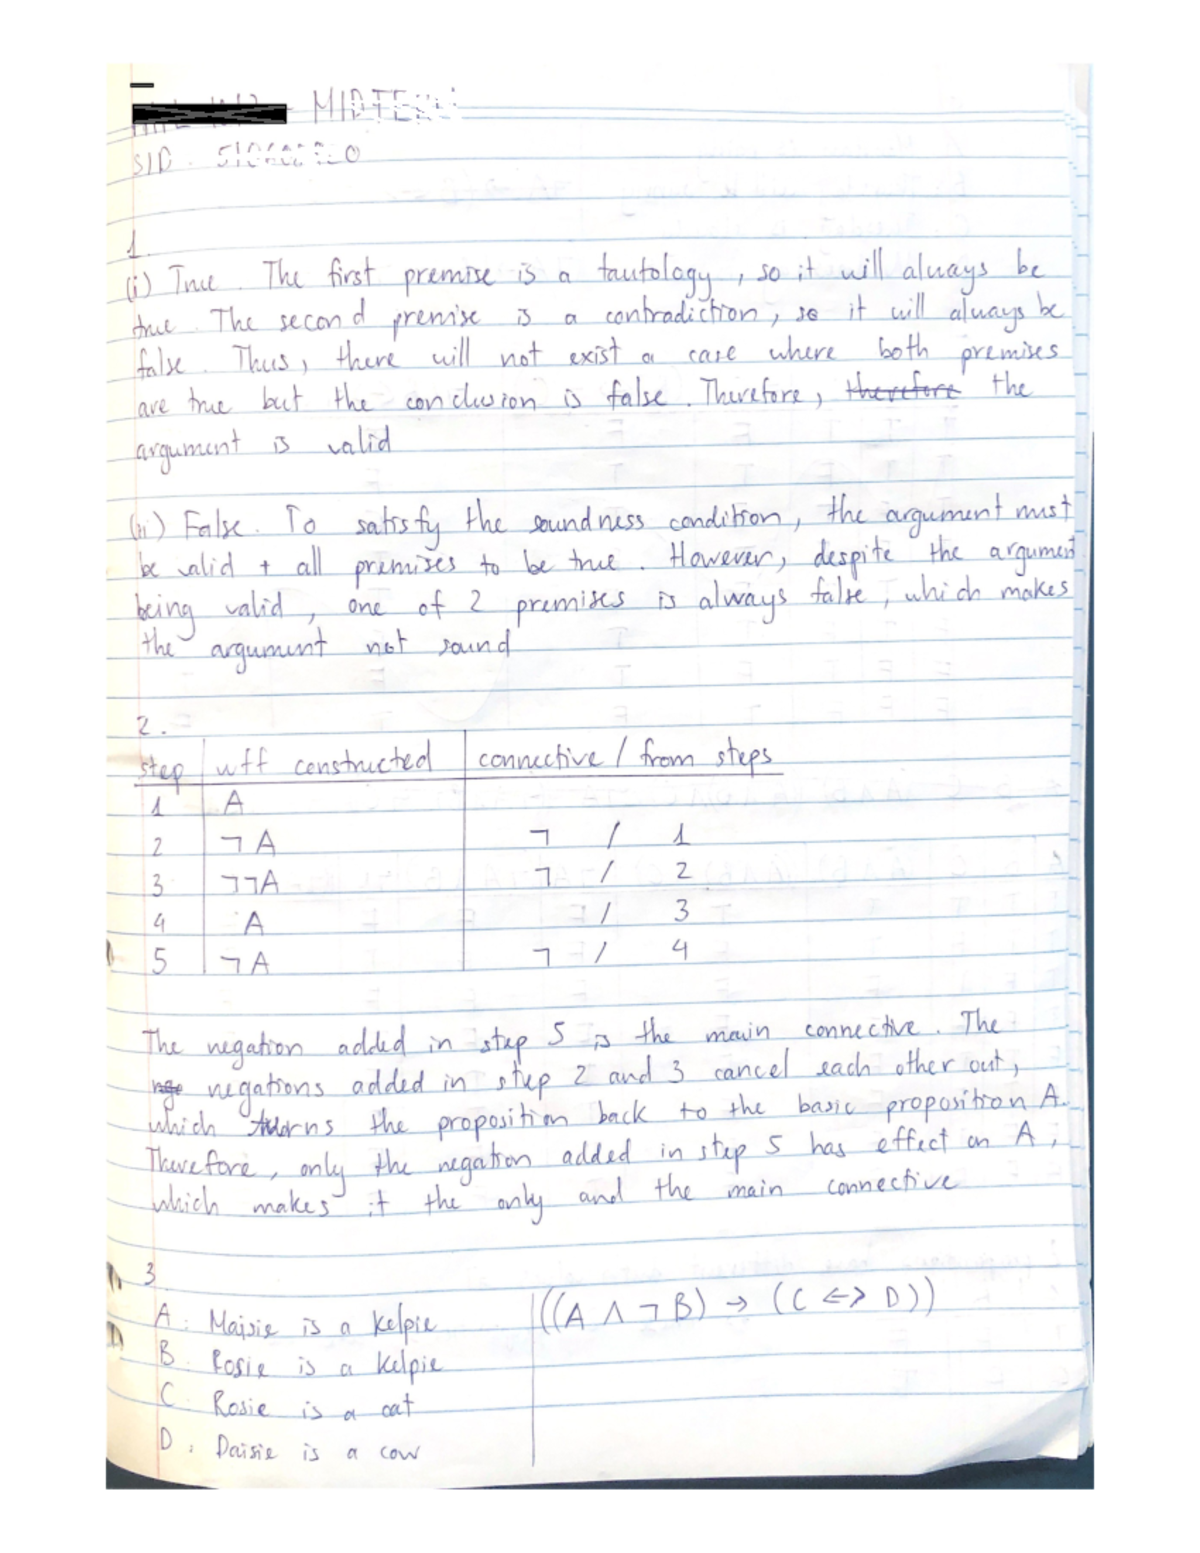 MIDTERM
SID.
1.
(i) True. The first premise is a tautology, so it will always be
true. The second premise is a contradiction, so it will always be
false. Thus, there will not exist a case where both premises
are true but the conclusion is false. Therefore, therefore the
argument is valid
(ii) False. To satisfy the soundness condition, the argument must
be valid + all premises to be true. However, despite the argument
being valid, one of 2 premises is always false, which makes
the argument not sound
2.
step wff constructed connective / from steps
1 A
2 ¬A ¬ / 1
3 ¬¬A ¬ / 2
4 A / 3
5 ¬A ¬ / 4
The negation added in step 5 is the main connective. The
nge negations added in step 2 and 3 cancel each other out,
which turns the proposition back to the basic proposition A.
Therefore, only the negation added in step 5 has effect on A,
which makes it the only and the main connective
3
A. Maisie is a Kelpie ((A ∧ ¬B) → (C ↔ D))
B. Rosie is a Kelpie
C. Rosie is a cat
D. Daisie is a cow